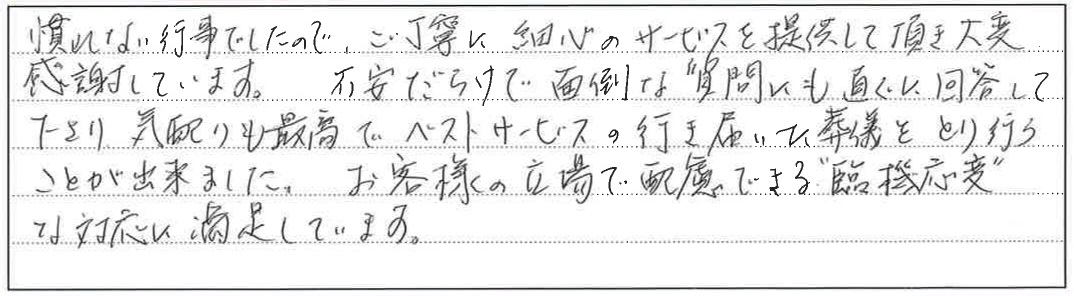 慣れない行事でしたので、ご丁寧に細心のサービスを提供して頂き大変
感謝しています。 不安だらけで面倒な質問にも直ぐに回答して
下さり気配りも最高でベストサービスの行き届いた葬儀をとり行う
ことが出来ました。 お客様の立場で配慮できる"臨機応変"
な対応に満足しています。